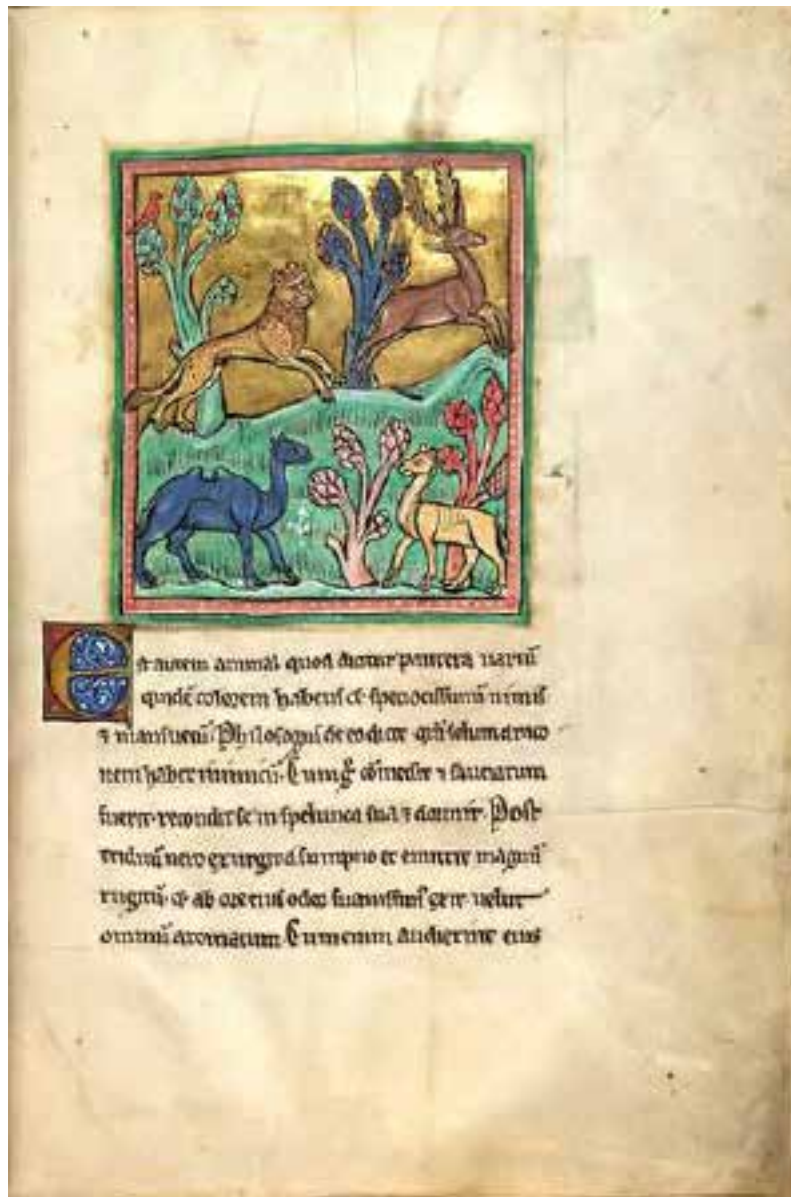 Est autem animal quod dicitur pantera variū
quidē colorem habens & speciosissimū nimis
⁊ mansuetū. Phisologus de eo dicit qđ solum draco
nem habet inimicū. Cum gͦ comederit ⁊ saciatum
fuerit. recondit se in spelunca sua ⁊ dormit. Post
triduū vero exurgit a sompno et emittit magnū
rugitū. & ab ore eius odor suauissimꝰ exit velut
omniū aromatum. Cum enim audierint eius